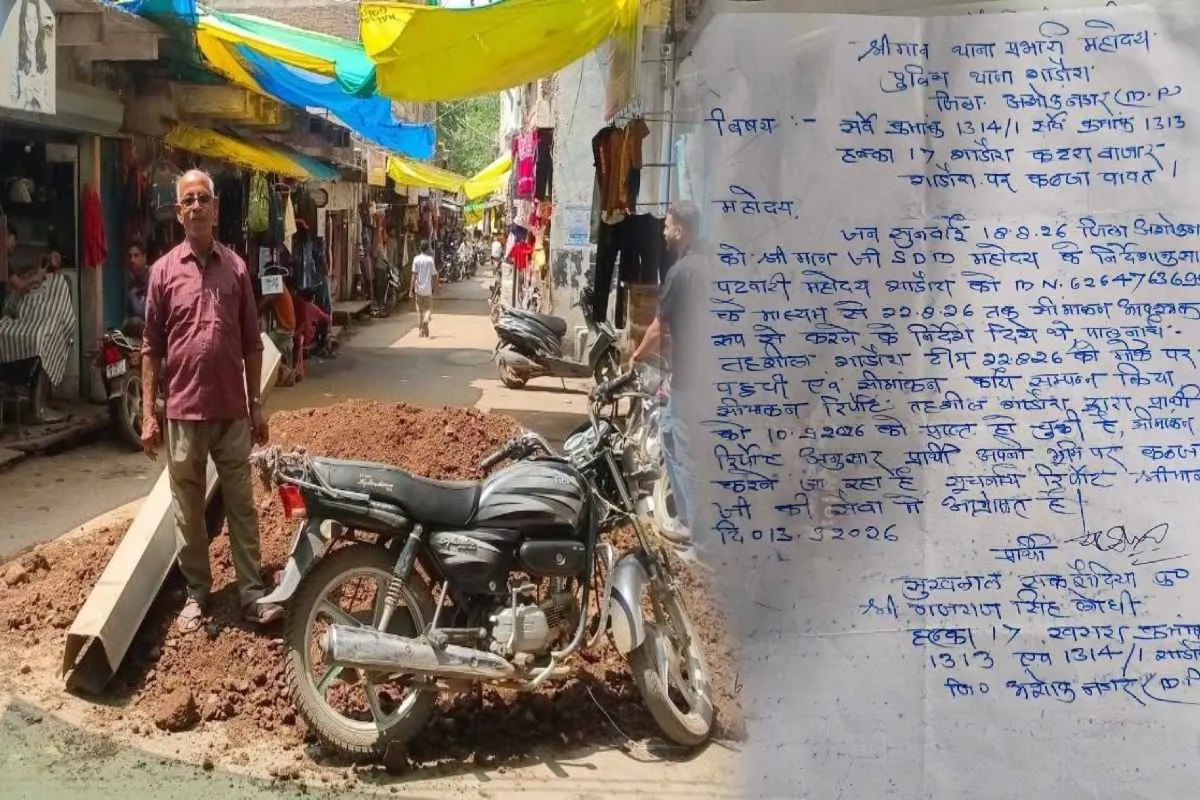 श्रीमान थाना प्रभारी महोदय
पुलिस थाना शाडौरा
जिला अशोकनगर (M.P)
विषय :- सर्वे क्रमांक 1314/1 सर्वे क्रमांक 1313
हल्का 17 शाडौरा कटरा बाजार
शाडौरा पर कब्जा बावत।
महोदय,
जन सुनवाई 18.8.26 जिला
को श्री मान जी SDM महोदय के
पटवारी महोदय शाडौरा को M N.
के माध्यम से 22.8.26 तक सीमांकन आवश्यक
रूप से करने के निर्देश दिये थे,
तहसील शाडौरा टीम 22.8.26 को मौके पर
पहुची एवं सीमांकन कार्य सम्पन्न किया
सीमांकन रिर्पोट तहसील शाडौरा द्वारा प्रार्थी
को 2026 को प्राप्त हो चुकी है, सीमांकन
रिर्पोट अनुसार प्रार्थी अपनी भूमि पर कब्जा
करने जा रहा है सूचनार्थ रिर्पोट श्रीमान
जी की सेवा में है।
2026
प्रार्थी
श्री गजराज सिंह लोधी
हल्का 17
1313 एवं 1314/1
जि० अशोक नगर (M.P